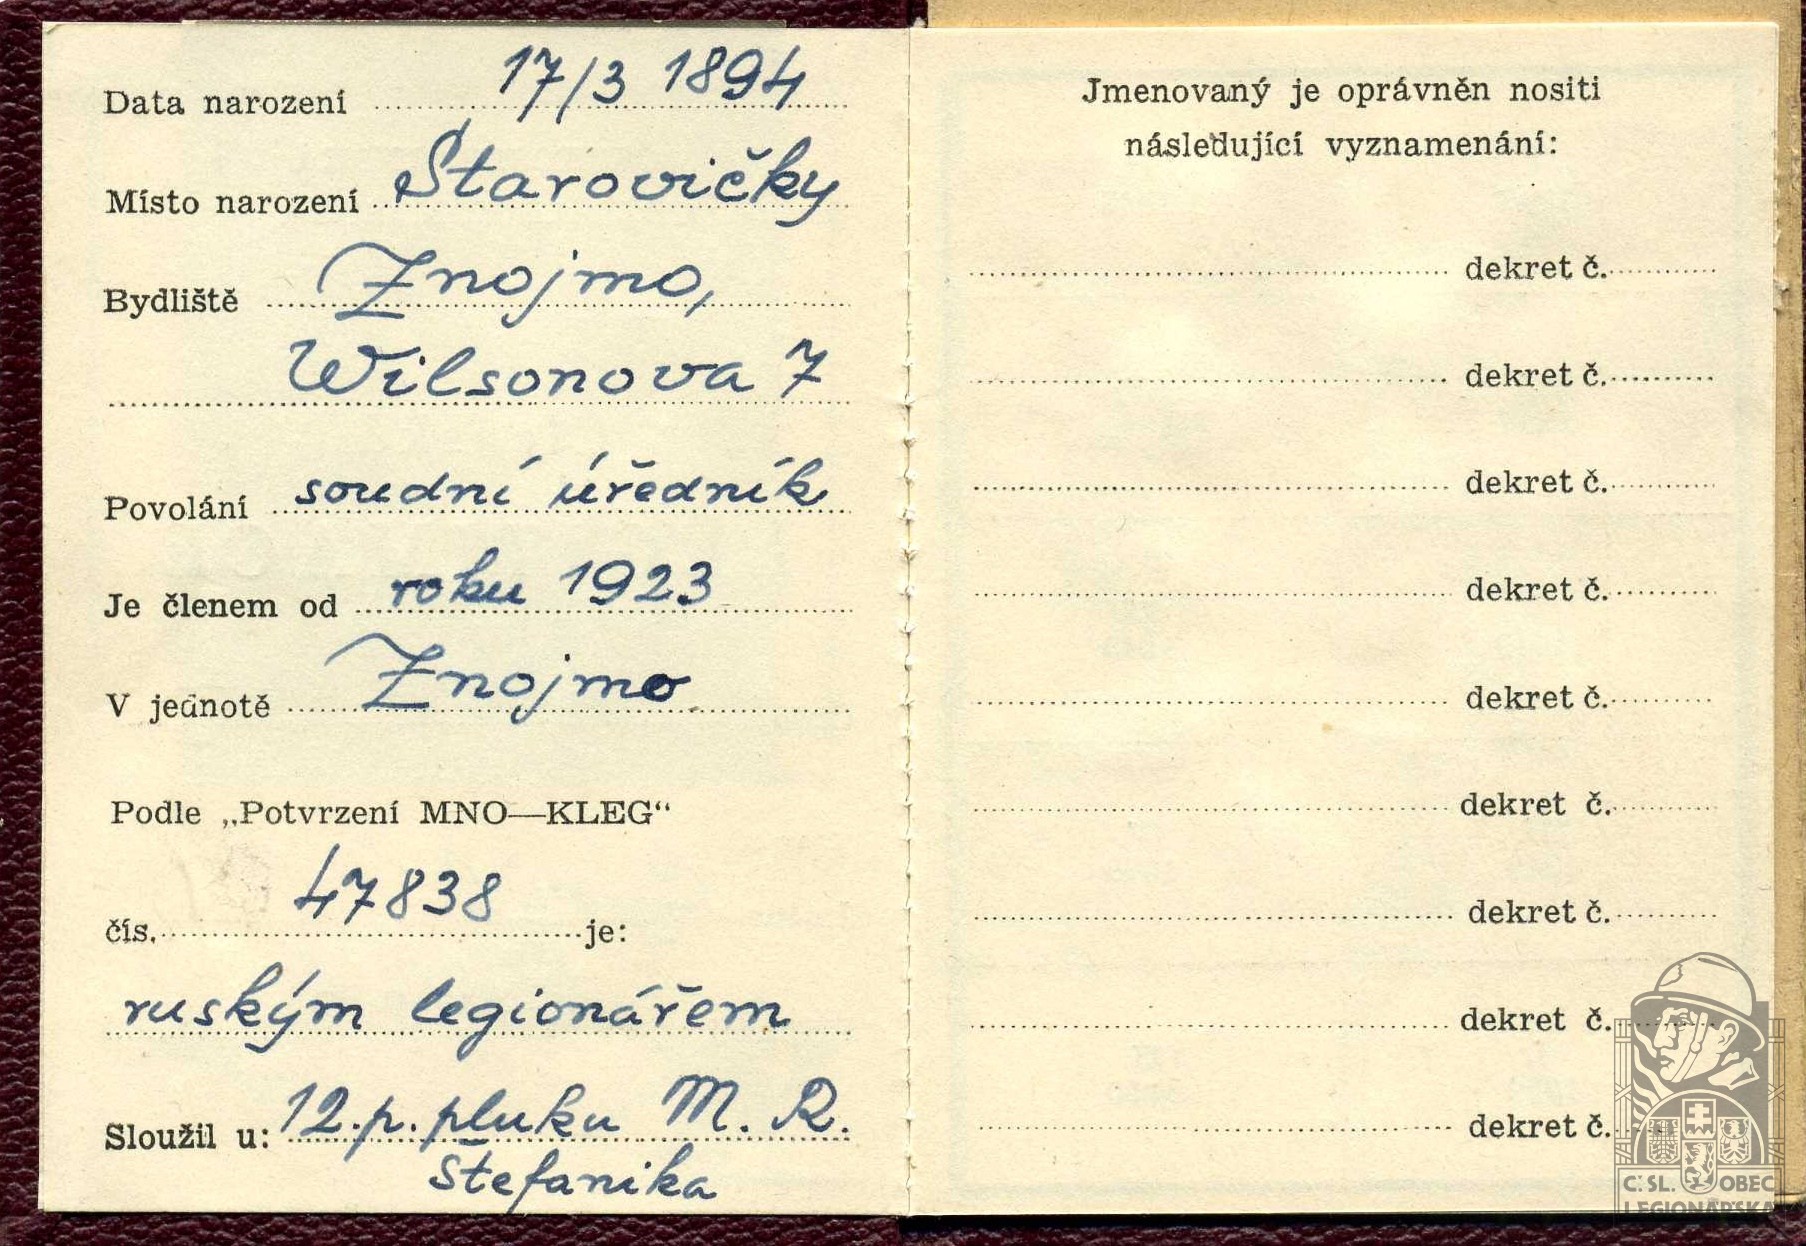 Data narození 17/3 1894
Místo narození Starovičky
Bydliště Znojmo,
Wilsonova 7
Povolání soudní úředník
Je členem od roku 1923
V jednotě Znojmo
Podle „Potvrzení MNO—KLEG“
čís. 47838 je:
ruským legionářem
Sloužil u: 12. p. pluku M. R.
Štefanika
Jmenovaný je oprávněn nositi
následující vyznamenání:
dekret č.
dekret č.
dekret č.
dekret č.
dekret č.
dekret č.
dekret č.
dekret č.
dekret č.
Č. SL. OBEC
LEGIONÁŘSKÁ